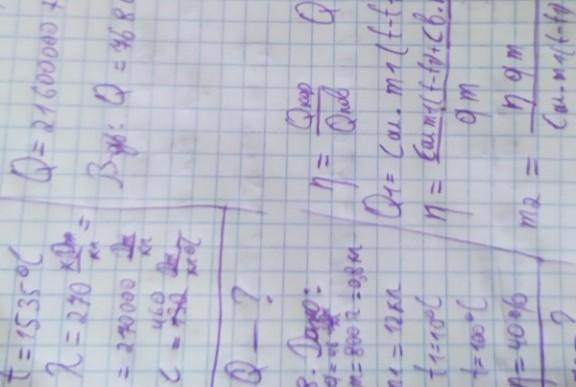 t = 1535°C
λ = 270 кДж/кг =
= 270000 Дж/кг
c = 460 Дж/кг°C
Q - ?
Q = 21600000
Q = 768
8. Дано:
m = 800 г = 0,8 кг
m1 = 12 кг
t1 = 10°C
t = 100°C
η = 40%
?
η = Qкор/Qпов
Q
Q1 = Cал. m1 (t-t
η = Cал m1 (t-t1) + Cв. / q m
m2 = η q m / Cал. m1 (t-t1)